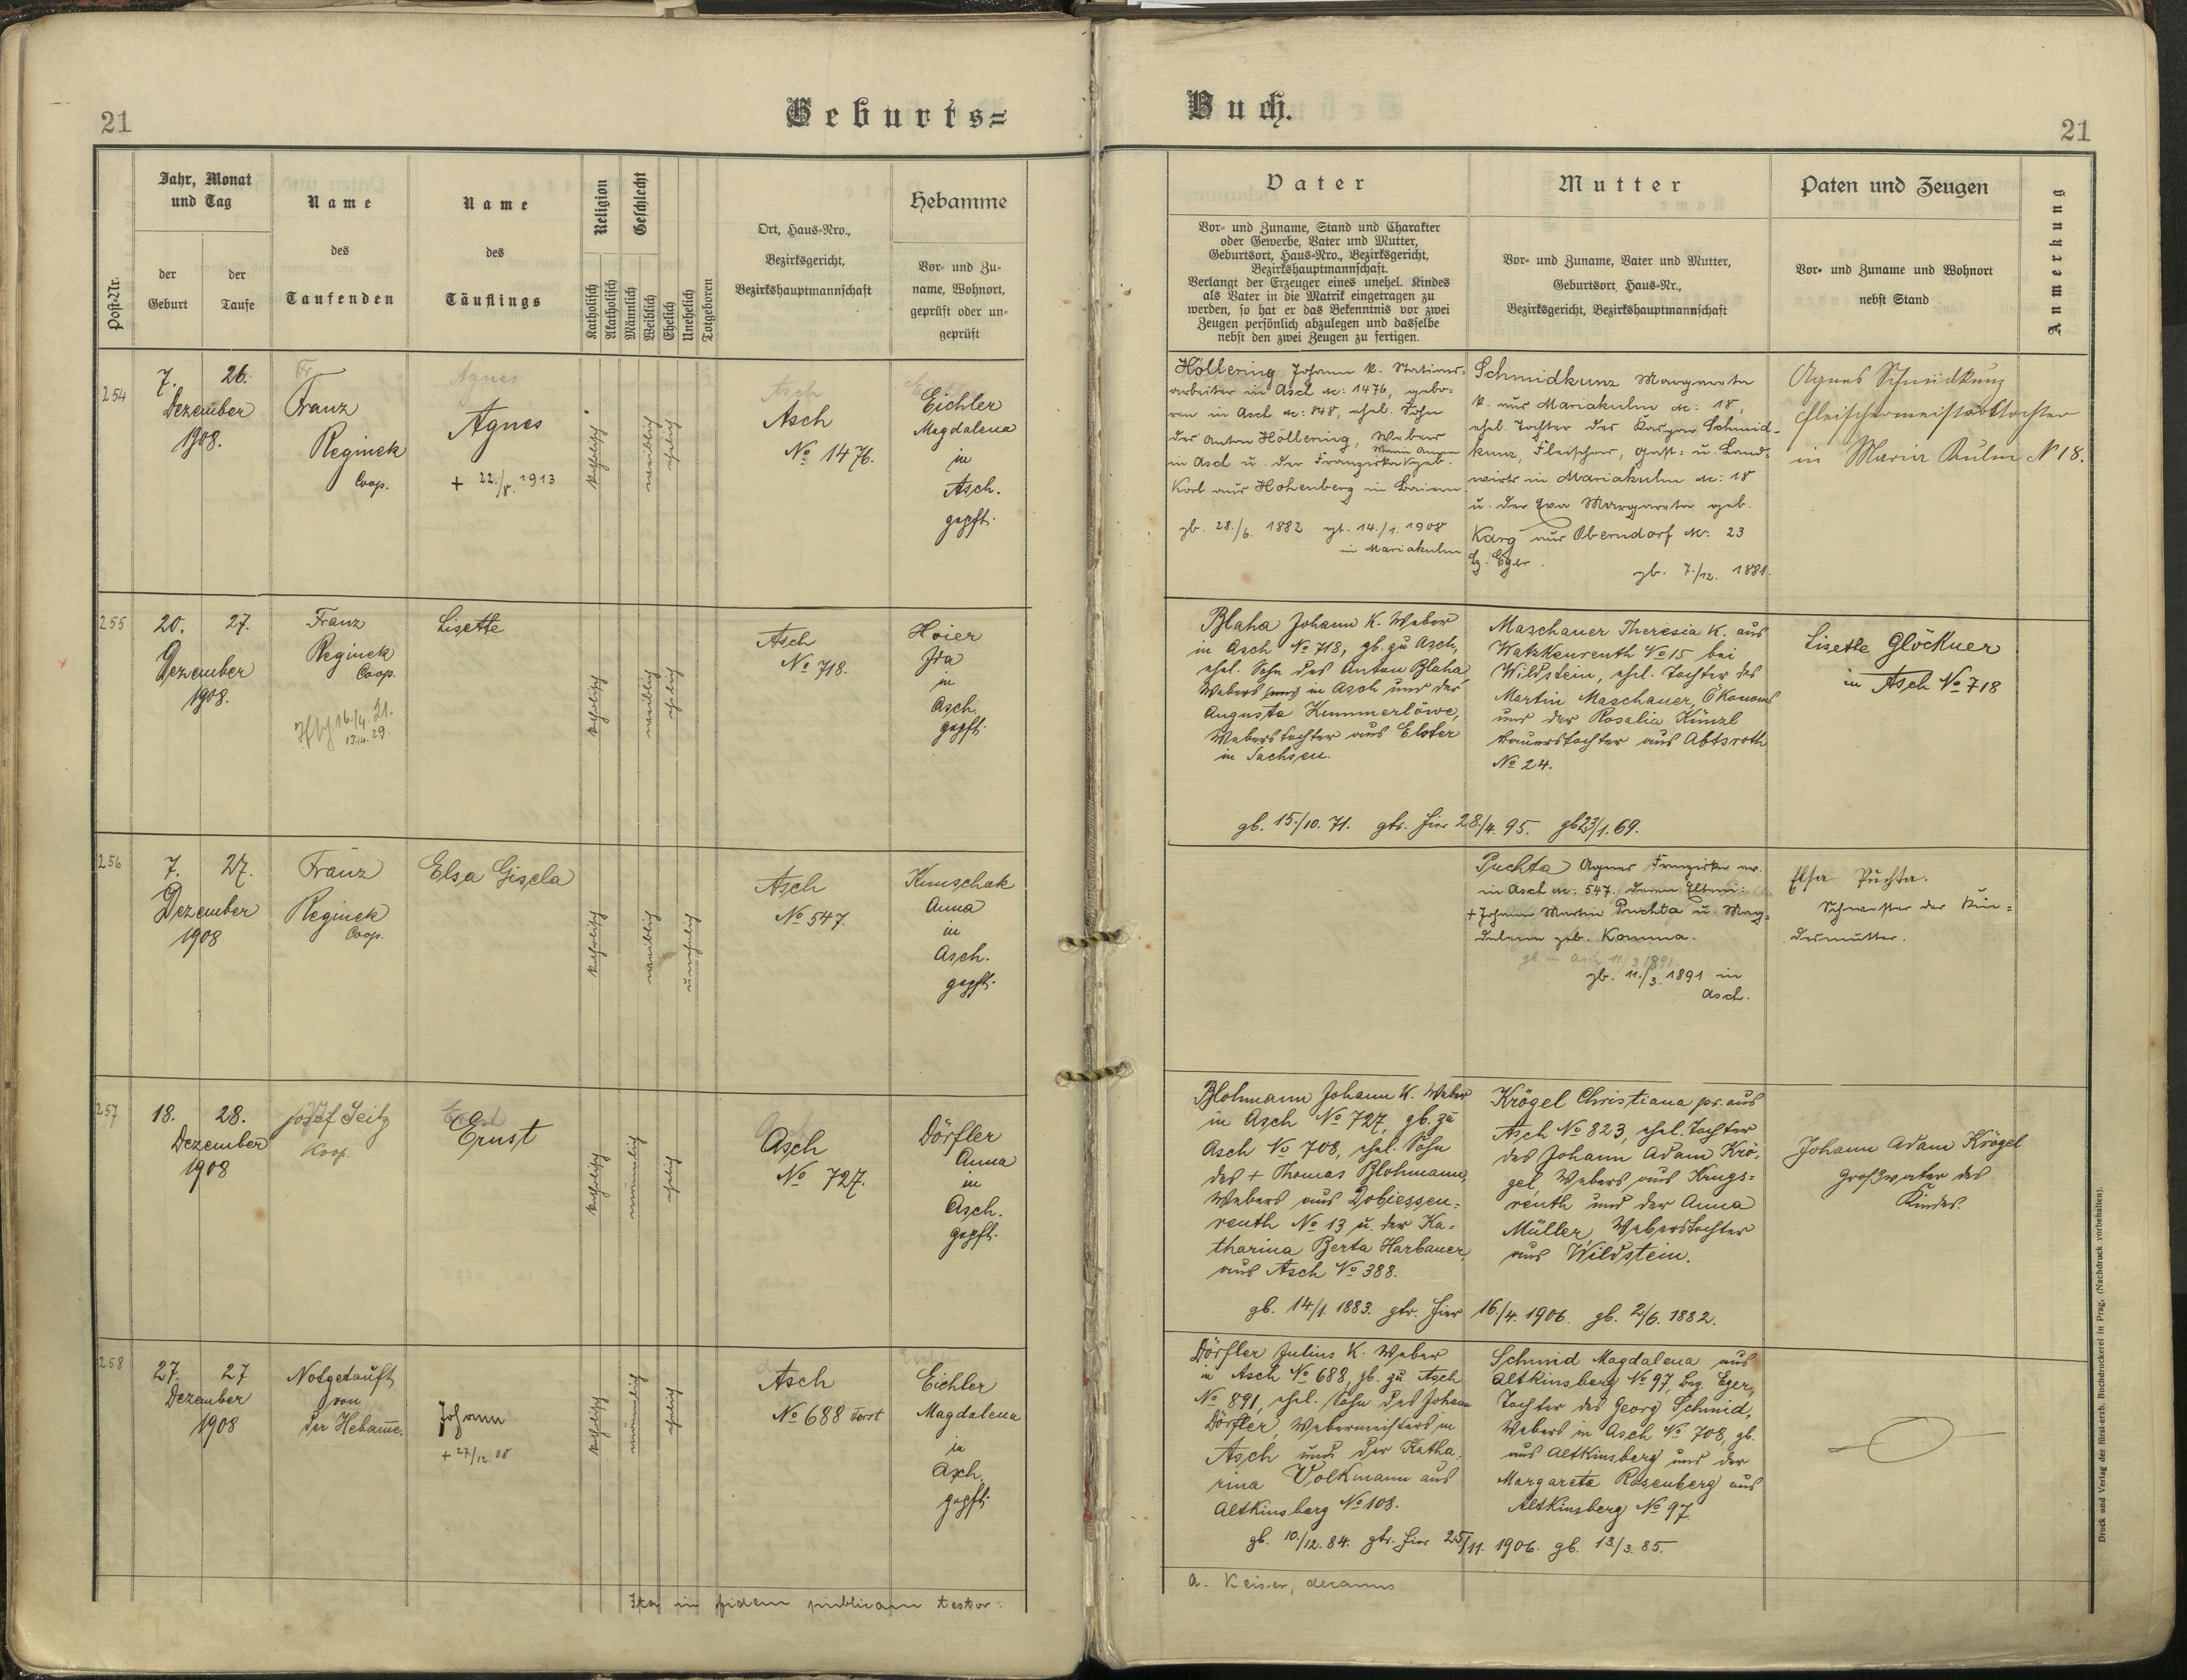 21
Geburts=
Buch.
21
Post-Nr.
Jahr, Monat
und Tag
der
Geburt
der
Taufe
Name
des
Taufenden
Name
des
Täuflings
Religion
Katholisch
Akatholisch
Geschlecht
Männlich
Weiblich
Ehelich
Unehelich
Totgeboren
Ort, Haus-Nro.,
Bezirksgericht,
Bezirkshauptmannschaft
Hebamme
Vor- und Zu-
name, Wohnort,
geprüft oder un-
geprüft
Vater
Vor- und Zuname, Stand und Charakter
oder Gewerbe, Vater und Mutter,
Geburtsort, Haus-Nro., Bezirksgericht,
Bezirkshauptmannschaft.
Verlangt der Erzeuger eines unehel. Kindes
als Vater in die Matrik eingetragen zu
werden, so hat er das Bekenntnis vor zwei
Zeugen persönlich abzulegen und dasselbe
nebst den zwei Zeugen zu fertigen.
Mutter
Vor- und Zuname, Vater und Mutter,
Geburtsort, Haus-Nr.,
Bezirksgericht, Bezirkshauptmannschaft
Paten und Zeugen
Vor- und Zuname und Wohnort
nebst Stand
Anmerkung
254
7. 26.
Dezember
1908.
Franz
Reginek
Coop.
Agnes
Agnes
+ 22./8. 1913
katholisch
weiblich
ehelich
Asch
Asch
№ 1476.
Eichler
Magdalena
in
Asch.
gepft.
Höllering Johann k. Stations-
arbeiter in Asch №: 1476, gebo-
ren in Asch №: 848, ehel. Sohn
des Anton Höllering, Webers
in Asch u. der Franziska geb.
Korb aus Hohenberg in Baiern.
gb. 28./6. 1882 gt. 14./1. 1908
in Mariakulm
Schmidkunz Margareta
k. aus Mariakulm №: 18,
ehel. Tochter des Kaspar Schmid-
kunz, Fleischer, Gast- u. Land-
wirts in Mariakulm №: 18
u. der Eva Margareta geb.
Karg aus Oberndorf №: 23
Bz. Eger.
gb. 7./12. 1881.
Agnes Schmidkunz
Fleischermeisterstochter
in Maria Kulm № 18.
255
20. 27.
Dezember
1908.
Franz
Reginek
Coop.
16./4. 21.
Lisette
katholisch
weiblich
ehelich
Asch
№ 718.
Hoier
Ida
in
Asch.
gepft.
Blaha Johann k. Weber
in Asch № 718, gb. zu Asch,
ehel. Sohn des Anton Blaha
Webers in Asch und der
Augusta Kummerlöwe,
Weberstochter aus Elster
in Sachsen.
gb. 15./10. 71. gtr. hier 28./4. 95. gb 23/1. 69.
Maschauer Theresia k. aus
Watzkenreuth № 15 bei
Wildstein, ehel. Tochter des
Martin Maschauer, Ökonoms
und der Rosalia Künzl
Bauerstochter aus Abtsroth
№ 24.
Lisette Glöckner
in Asch № 718
256
7. 27.
Dezember
1908
Franz
Reginek
Coop.
Elsa Gisela
katholisch
weiblich
unehelich
Asch
№ 547.
Kunschak
Anna
in
Asch.
gepft.
Puchta Agnes Franziska ev.
in Asch №: 547. deren Eltern:
+ Johann Martin Puchta u. Mag-
dalena geb. Komma.
gb. in Asch 11/3 1891.
gb. 11./3. 1891 in
Asch.
Elsa Puchta.
Schwester der Kin-
desmutter.
257
18. 28.
Dezember
1908
Josef Seitz
Koop.
Ernst
Ernst
katholisch
männlich
ehelich
Asch
№ 727.
Dörfler
Anna
in
Asch.
gepft.
Blohmann Johann k. Weber
in Asch № 727, gb. zu
Asch № 708, ehel. Sohn
des + Thomas Blohmann,
Webers aus Dobiessen-
reuth № 13 u. der Ka-
tharina Berta Harbauer,
aus Asch № 388.
gb. 14/1. 1883. gtr. hier 16./4. 1906. gb. 2/6. 1882.
Krögel Christiana pr. aus
Asch № 823, ehel. Tochter
des Johann Adam Krö-
gel, Webers aus Krugs-
reuth und der Anna
Müller, Weberstochter
aus Wildstein.
Johann Adam Krögel
Großvater des
Kindes.
258
27. 27
Dezember
1908
Notgetauft
von
der Hebamme.
Johann
+ 27/12. 08
katholisch
männlich
ehelich
Asch
№ 688 Forst
Eichler
Magdalena
in
Asch.
gepft.
Dörfler Julius k. Weber
in Asch № 688, gb. zu Asch
№ 891, ehel. Sohn des Johann
Dörfler, Webermeisters in
Asch und der Katha-
rina Volkmann aus
Altkinsberg № 108.
gb. 10./12. 84. gtr. hier 25/11. 1906. gb. 13./3. 85.
Schmid Magdalena aus
Altkinsberg № 97, Bez. Eger,
Tochter des Georg Schmid,
Webers in Asch № 708, gb.
aus Altkinsberg und der
Margareta Rosenberg aus
Altkinsberg № 97.
Ita in fidem publicam testor:
A. Keiser, decanus
Druck und Verlag der fürst-erzb. Buchdruckerei in Prag. (Nachdruck vorbehalten).